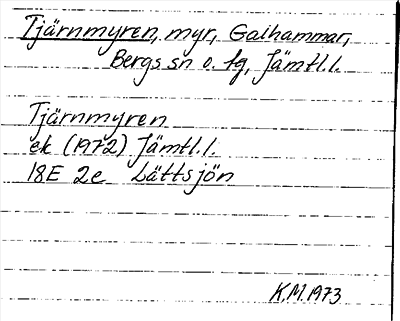 Tjärnmyren, myr, Galhammar,
Bergs sn o. tg, Jämtl.l.
Tjärnmyren
ek (1972) Jämtl.l.
18E 2e Lättsjön
K.M. 1973